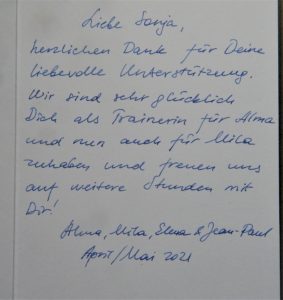 Liebe Sonja,
herzlichen Dank für Deine
liebevolle Unterstützung.
Wir sind sehr glücklich
Dich als Trainerin für Alma
und nun auch für Mila
zuhaben und freuen uns
auf weitere Stunden mit
Dir!
Alma, Mila, Elena & Jean-Paul
April/Mai 2021